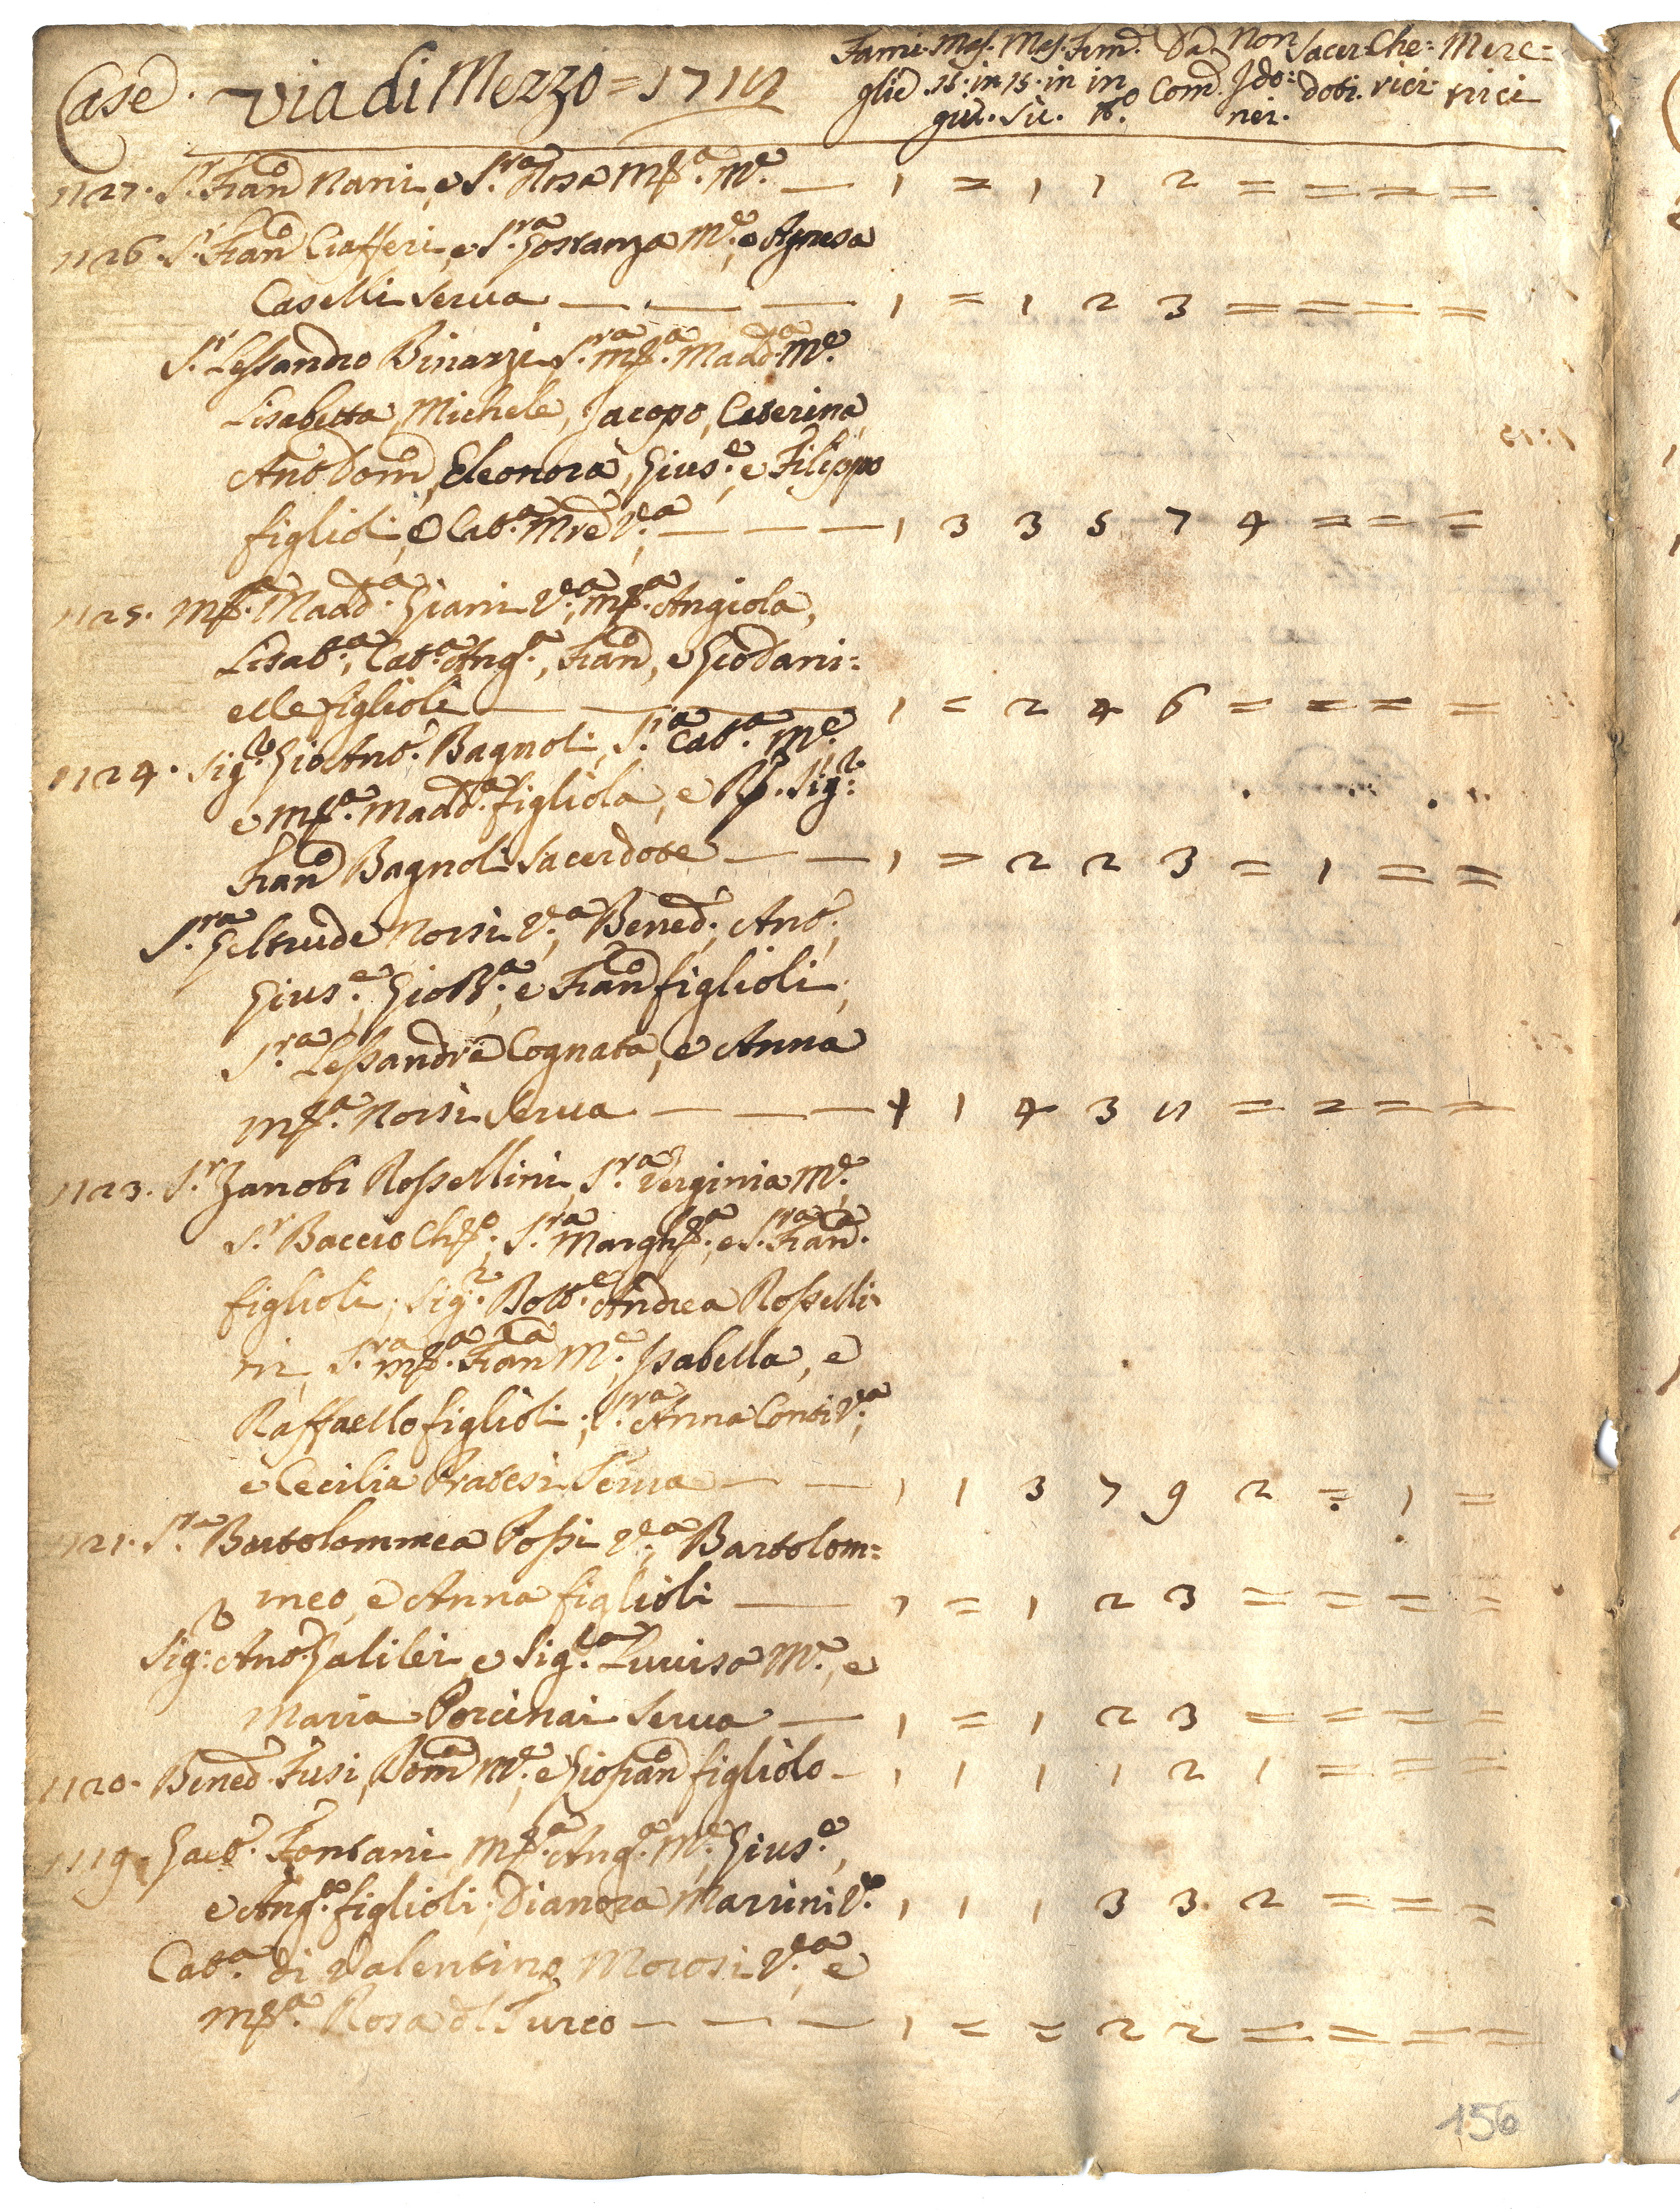 Case. Via di Mezzo = 1712 Fami: Mas. Mas. Fem. Da Non Sacer Che: Merc=
glie 15. in 15. in in Com. Ido: doti. rici rirci
giù. Sù. tt.o nei.
1127. S.r Fran.co Nani, e S.ra Rosa M.a M.e — 1 = 1 1 2 = = = =
1126. S.r Fran.co Ciafferi, e S.ra Gostanza M.e, e Agnesa
Caselli Serua — — — 1 = 1 2 3 = = = =
S.r Lessandro Binazzi, S.ra M.a Madd.a M.e
Lisabetta, Michele, Jacopo, Caterina
Ant.o Dom.co, Eleonora, Gius.e, e Filippo
figlioli, e Cat.a Mre V.a — — — 1 3 3 5 7 4 = = =
1125. M.a Madd.a Giani V.a, M.a Angiola,
Lisab.a, Cat.a Ang.a, Fran.co, e Gio Dani=
elle figlioli — — — 1 = 2 4 6 = = = =
1124. Sig.r Gio Ant.o Bagnoli, S.ra Cat.a M.e
e M.a Madd.a figliola, e R. Sig.r
Fran.co Bagnoli Sacerdote — — 1 = 2 2 3 = 1 = =
S.ra Geltrude Norsi V.a, Bened.o, Ant.o,
Gius.e, Gio B.a, e Fran.co figlioli,
S.ra Lessandra Cognata, e Anna
M.a Norsi Serua — — — 1 1 4 3 = = = =
1123. S.r Zanobi Rossellini, S.ra Verginia M.e
S.r Baccio, S.ra Margh.a, e S.ra Fran.ca
figlioli, Sig.r Andrea Rosselli
ni, S.ra M.a Fran.ca M.e, Isabella, e
Raffaello figlioli; S.ra Anna Conti V.a,
e Cecilia Pratesi Serua — — 1 1 3 7 9 2 = 1 =
1121. S.ra Bartolommea Rossi V.a, Bartolom=
meo, e Anna figlioli — 1 = 1 2 3 = = = =
Sig.r Ant.o Galilei, e Sig.ra Luuisa M.e, e
Maria Porcinai Serua — 1 = 1 2 3 = = = =
1120. Bened.o Fusi, Dom.ca M.e, e Gio Fran.co figliolo — 1 1 1 1 2 1 = = =
1119. Fontani, M.a Ang.a M.e, Gius.e,
e Ang.o figlioli; Dianora Marrini V.a 1 1 1 3 3. 2 = = =
Cat.a di Valentino Morosi V.a, e
M.a Rosa del Turco — — — 1 = = 2 2 = = = =
156